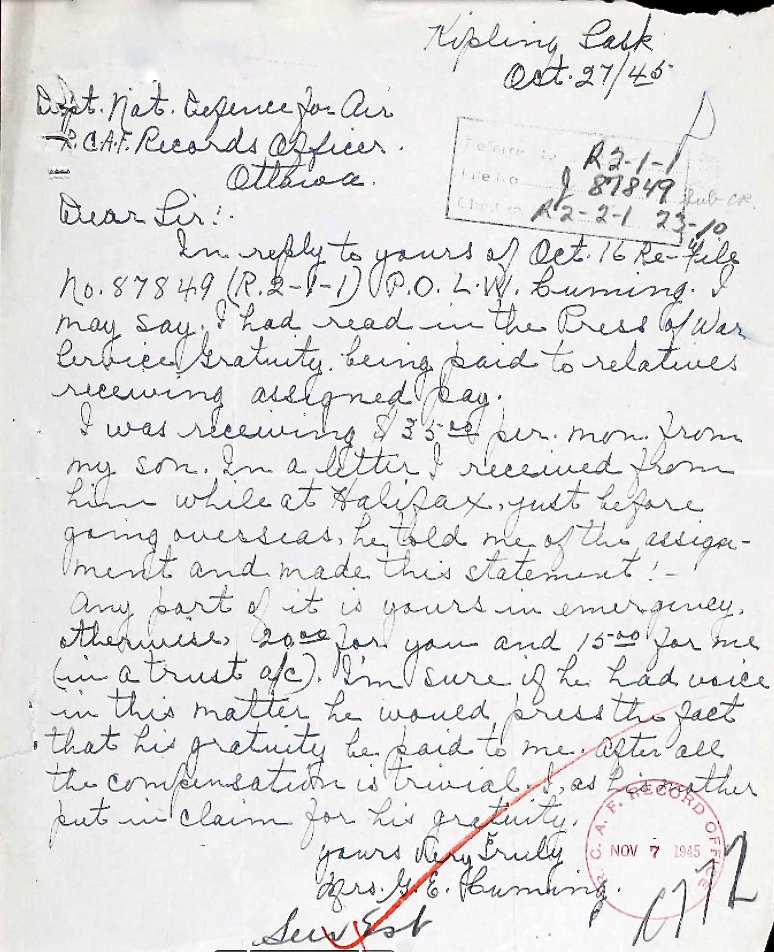 Kipling Sask
Oct. 27/45
Dept. Nat. Defence for Air
R.C.A.F. Records Officer.
Ottawa.
R2-1-1
J 87849
Sub-CR.
R2-2-1 23-10
Dear Sir:-
In reply to yours of Oct. 16 Re-"File
No. 87849 (R.2-1-1) P.O. L.W. Cuming. I
may say, I had read in the Press of War
Service Gratuity, being paid to relatives
receiving assigned pay.
I was receiving $35.00 per. mon. from
my son. In a letter I received from
him while at Halifax, just before
going overseas, he told me of the assign-
ment and made this statement!-
Any part of it is yours in emergency,
otherwise, 20.00 for you and 15.00 for me
(in a trust a/c). I'm sure if he had voice
in this matter he would press the fact
that his gratuity be paid to me. After all
the compensation is trivial. I, as his mother
put in claim for his gratuity.
yours Very Truly
Mrs. G. E. Cuming.
R. C. A. F. RECORD OFFICE
NOV 7 1945
Est